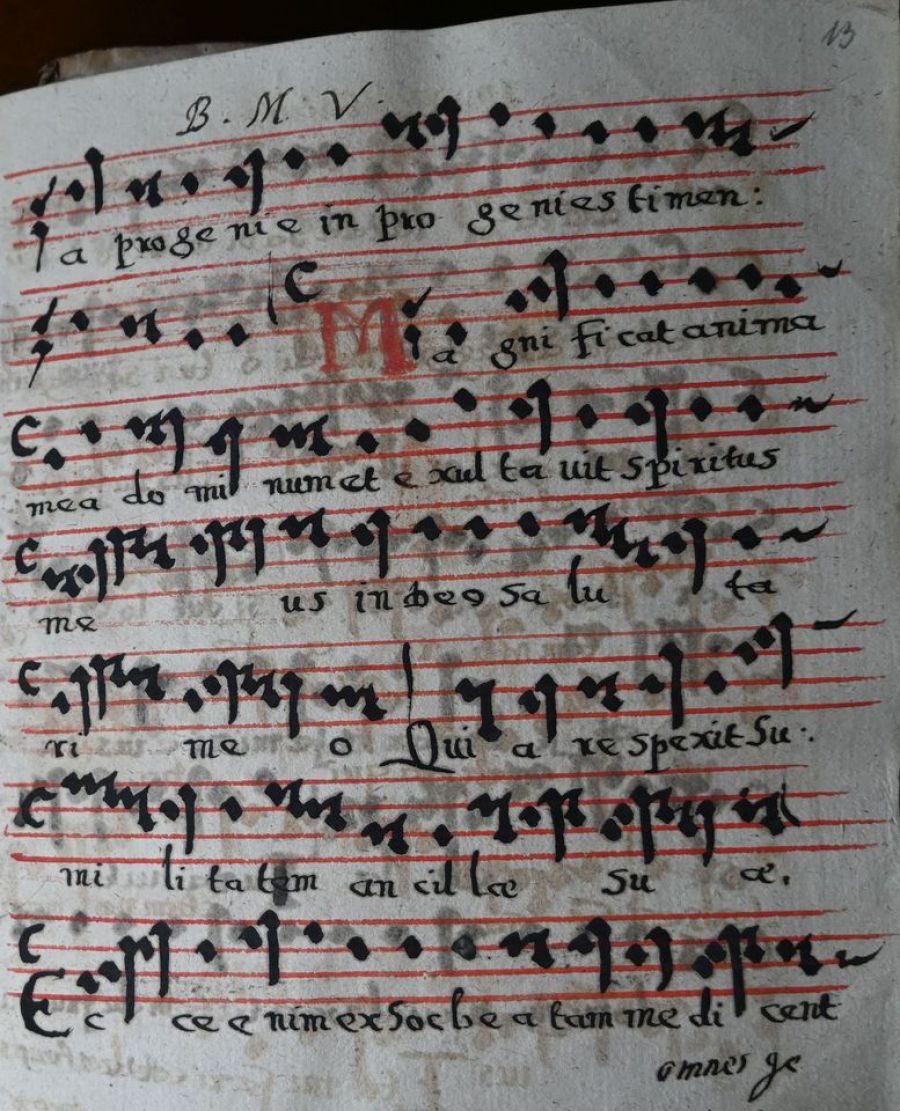 13
B. M. V.
a progenie in pro geniestimen:
Magnificat anima
mea do mi num et exul ta uit spiritus
me us in deo sa lu ta
ri me o Qui a respexit su:
mi li ta tem an cil læ su æ.
Ec ce enim ex hoc be a tam me di cent
omnes ge